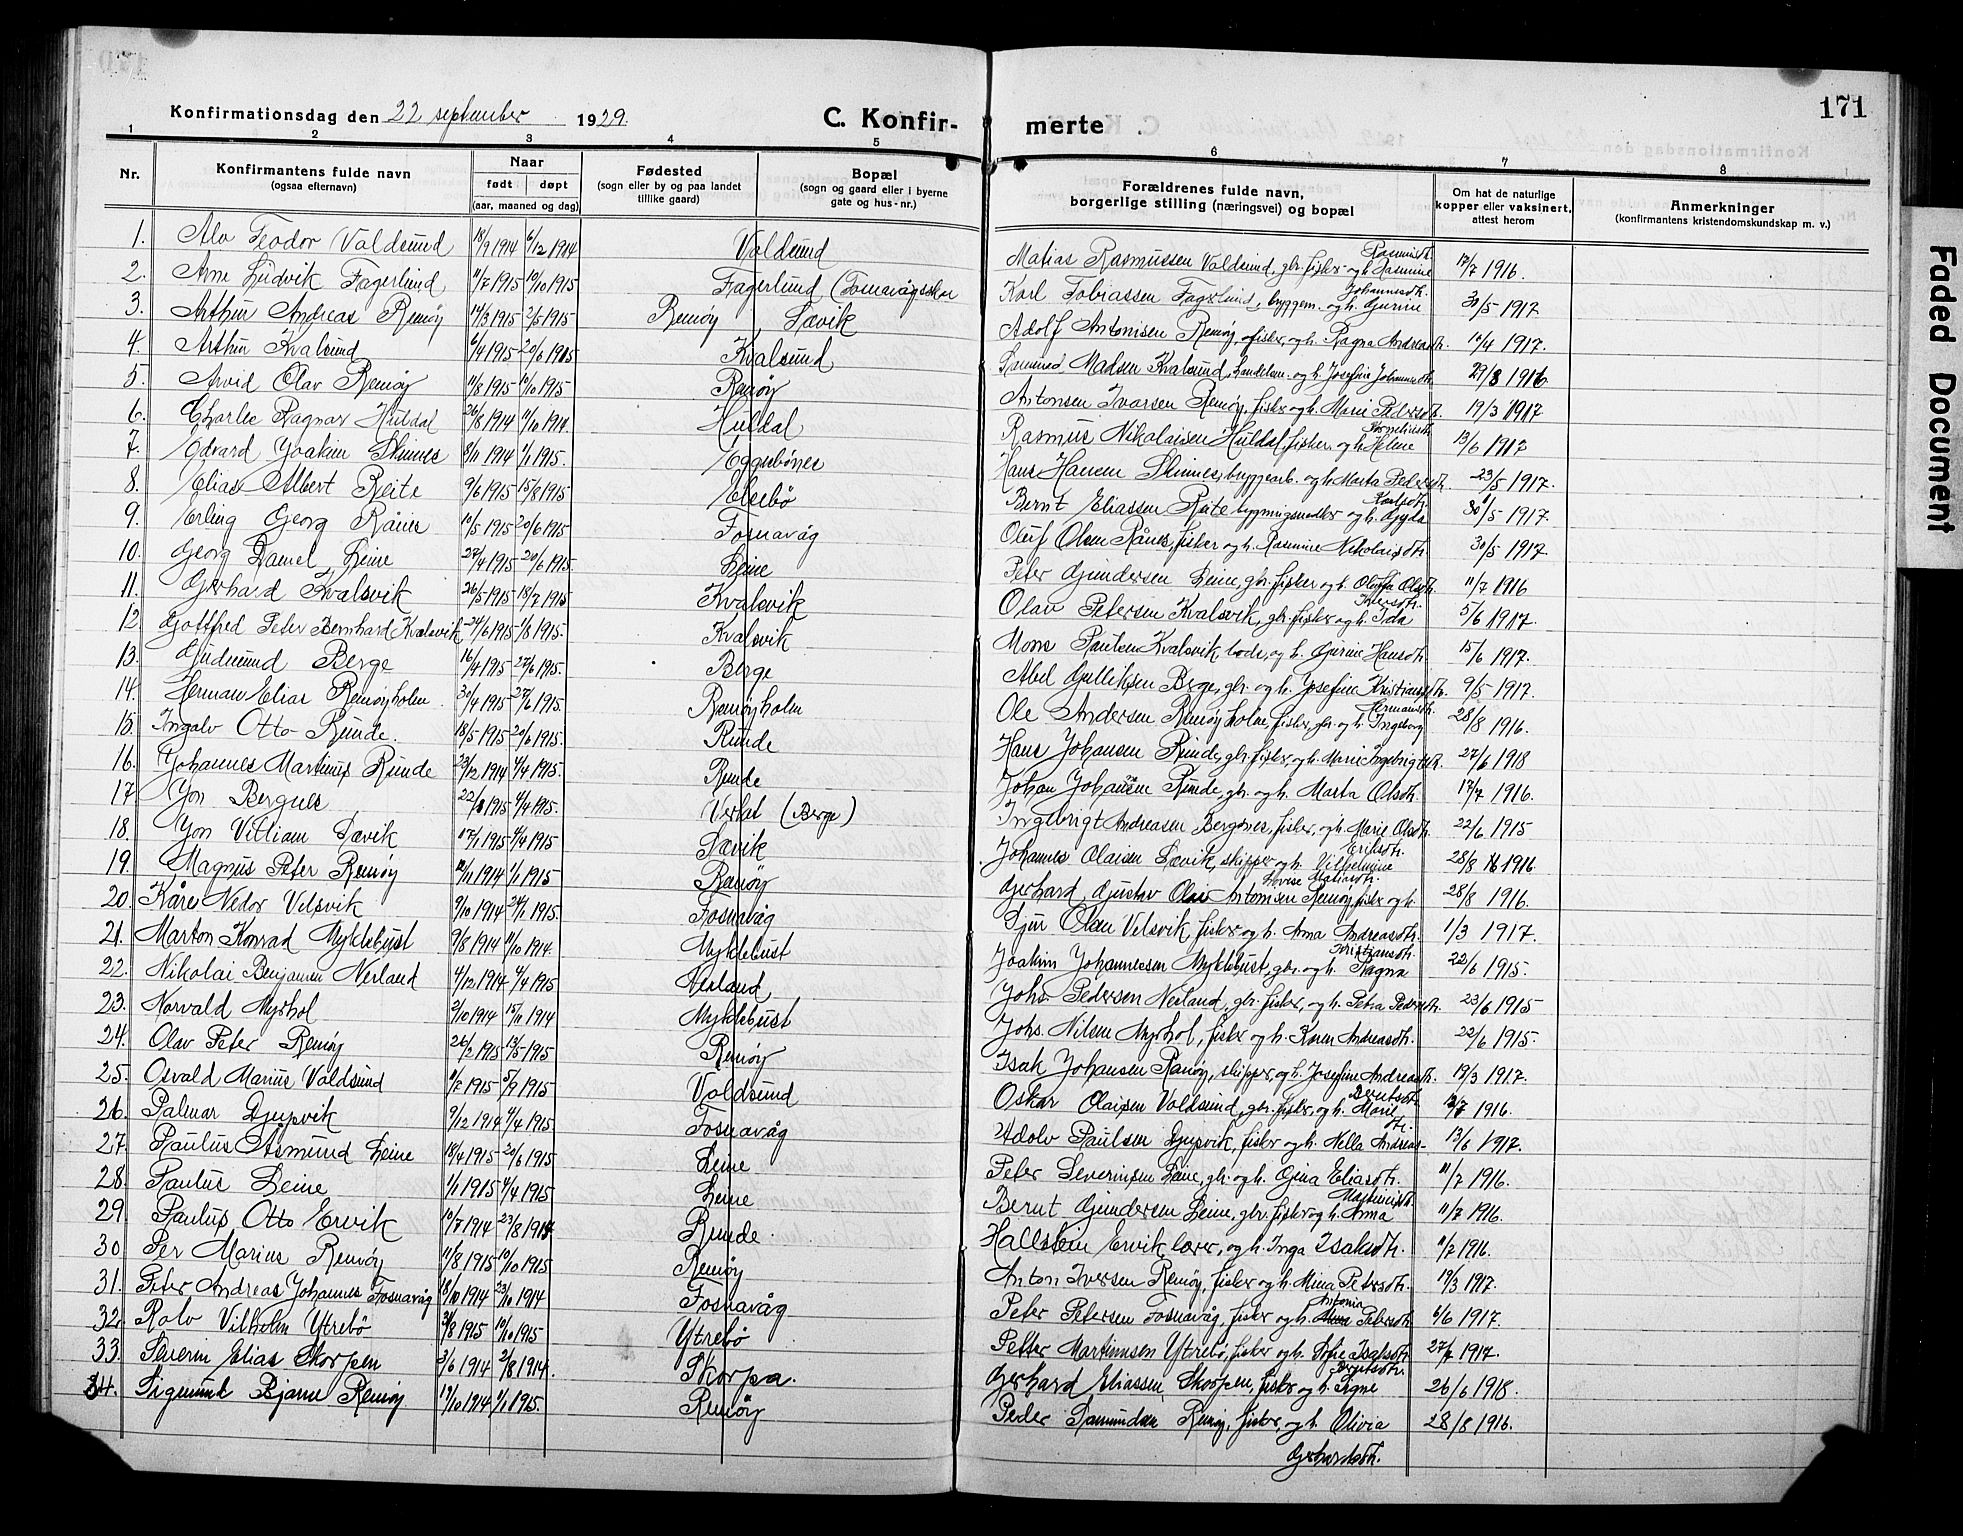 171
Konfirmationsdag den 22 september 1929.
C. Konfirmerte
1 2 3 4 5 6 7 8
Nr. Konfirmantens fulde navn (ogsaa efternavn) Naar født døpt (aar, maaned og dag) Fødested (sogn eller by og paa landet tillike gaard) Bopæl (sogn og gaard eller i byerne gate og hus-nr.) Forældrenes fulde navn, borgerlige stilling (næringsvei) og bopæl Om hat de naturlige kopper eller vaksinert, attest herom Anmerkninger (konfirmantens kristendomskundskap m. v.)
1. Alv Teodor Voldsund 18/9 1914 6/12 1914 Voldsund Matias Rasmussen Voldsund, gbr. fisker og h. Rasmine Rasmusdtr. 17/7 1916.
2. Arne Ludvik Fagerlund 11/7 1915 10/10 1915 Fagerlund (Fosnavåg Karl Tobiassen Fagerlund, byggm. og h. Gurine Johannesdtr. 30/5 1917
3. Arthur Andreas Remøy 14/3 1915 2/5 1915 Remøy Sævik Adolf Antonisen Remøy, fisker, og h. Ragna Andreasdtr. 1917.
4. Arthur Kvalsund 6/4 1915 20/6 1915 Kvalsund Madsen Kvalsund, og h. Josefine Johannesdtr. 1916
5. Arvid Olav Remøy 11/8 1915 10/10 1915 Remøy Antonsen Ivarsen Remøy, fisker og h. Marie Petersdtr. 19/3 1917
6. Charles Ragnar Huldal 26/8 1914 11/10 1914. Huldal Rasmus Nikolaisen Huldal, fisker og h. Helene Korneliusdtr. 13/6 1917
7. Edvard Joakim Skinnes 8/11 1914 1/1 1915. Eggesbønes Hans Hansen Skinnes, bryggearb. og h. Marta Pedersdtr. 23/5 1917.
8. Elias Albert Reite 9/6 1915 15/8 1915 Elsebø Bernt Eliassen Reite, og h. Gyda Karlsdtr. 30/5 1917.
9. Erling Georg Rånes 10/5 1915 20/6 1915 Fosnavåg Oluf Olsen Rånes, fisker og h. Rasmine Nikolaisdtr. 30/5 1917.
10. Georg Daniel Leine 27/4 1915 20/6 1915. Leine Peter Gundersen Leine, gbr. fisker og h. Oluffa Olsdtr. 11/7 1916
11. Gerhard Kvalsvik 26/5 1915 18/7 1915 Kvalsvik Olav Petersen Kvalsvik, gbr. fisker og h. Ida 5/6 1917.
12 Gottfred Peter Bernhard Kvalsvik 24/6 1915 1/8 1915. Kvalsvik Mons Paulsen Kvalsvik, lods, og h. Gurine Hansdtr. 15/6 1917.
13. Gudmund Berge 16/4 1915 27/6 1915. Berge Abel Gulliksen Berge, gbr. og h. Josefine Kristiansdtr. 9/5 1917.
14. Herman Elias Remøyholm 30/4 1915 27/6 1915. Remøyholm Ole Andersen Remøyholm, fisker, gbr. og h. Ingeborg Hermansdtr. 28/8 1916.
15. Ingalv Otto Runde. 18/5 1915 20/6 1915. Runde Hans Johansen Runde, gbr. fisker, og h. Marie Ingebrigtsdtr. 27/6 1918
16. Johannes Martinus Runde 23/12 1914 4/4 1915. Runde Johan Johansen Runde, gbr. og h. Marta Olsdtr. 17/7 1916.
17. Jon Bergsnes 22/ 1915 4/4 1915. (Berge) Ingebrigt Andreasen Bergsnes, fisker, og h. Marie Olsdtr. 22/6 1915
18. Jon William Sævik 17/1 1915 4/4 1915 Sævik Johannes Olaisen Sævik, skipper, og h. Vilhelmine Eriksdtr. 28/8 1916.
19. Magnus Peter Remøy 12/11 1914 1/1 1915 Remøy Gerhard Gustav Olav Antonisen Remøy, fisker og h. Lovise Matiasdtr. 28/8 1916.
20. Kåre Nedor Velsvik 9/10 1914 24/1 1915. Fosnavåg Sjur Olsen Velsvik, fisker og h. Anna Andreasdtr. 1/3 1917.
21. Marton Konrad Myklebust 9/8 1914 11/10 1914. Myklebust Joakim Johannesen Myklebust, gbr. og h. Ragna Kristiansdtr. 22/6 1915.
22. Nikolai Benjamin Nerland 4/12 1914 4/4 1915 Nerland Johs. Pedersen Nerland, gbr. fisker, og h. Petra Pedersdtr. 23/6 1915
23. Norvald Myrhol 2/10 1914 15/11 1914 Myklebust Johs. Nilsen Myrhol, fisker og h. Karen Andreasdtr. 22/6 1915.
24. Olav Peter Remøy 26/2 1915 13/5 1915 Remøy Isak Johansen Remøy, skipper, og h. Josefine Andreasdtr. 19/3 1917.
25. Osvald Marius Voldsund 1915 5/9 1915 Voldsund Oskar Olaisen Voldsund, gbr. fisker, og h. Marie Berntsdtr. 1916.
26. Palmar Djupvik 9/12 1914 4/4 1915 Fosnavåg Adolv Paulsen Djupvik, fisker og h. Nella Andreasdtr. 13/6 1917.
27. Paulus Åsmund Leine 18/4 1915 20/6 1915 Leine Peter Severinsen Leine, gbr. og h. Gina Eliasdtr. 11/7 1916.
28. Paulus Leine 1/1 1915 4/4 1915 Leine Bernt Gundersen Leine, gbr. fisker og h. Anna Martinusdtr. 11/7 1916.
29. Paulus Otto Ervik 10/7 1914 23/8 1914. Runde. Hallstein Ervik, lærer, og h. Inga Isaksdtr. 11/7 1916.
30 Per Marius Remøy 11/8 1915 10/10 1915 Remøy Anton Iversen Remøy, fisker og h. Mina Petersdtr. 19/3 1917.
31. Peter Andreas Johannes Fosnavåg 18/10 1914 23/10 1914 Fosnavåg Peter Petersen Fosnavåg, fisker og h. Antonia Petersdtr. 6/6 1917.
32. Rolv Vilhelm Ytrebø 31/8 1915 10/10 1915 Ytrebø Petter Martinusen Ytrebø, fisker og h. Sofie Isaksdtr. 27/7 1917.
33. Severin Elias Skorpen 3/6 1914 2/8 1914. Skorpa. Gerhard Eliassen Skorpen, fisker og h. Signe Berntsdtr. 26/6 1918.
34. Sigmund Bjarne Remøy 17/10 1914 1/1 1915. Remøy Peder Samundsen Remøy, fisker, og h. Olivia Gerhardsdtr. 28/8 1916.
Faded Document